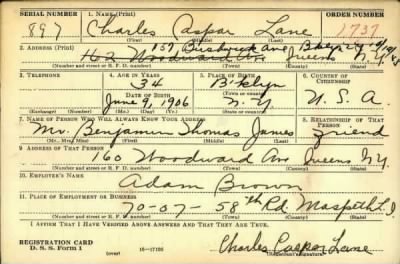 SERIAL NUMBER 1. NAME (Print) ORDER NUMBER
897 Charles Caspar Lane 1737
2. ADDRESS (Print) 157 Bushwick Ave Bklyn
162 Woodward Ave Queens N.Y.
(Number and street or R. F. D. number) (Town) (County) (State)
3. TELEPHONE 4. AGE IN YEARS 5. PLACE OF BIRTH 6. COUNTRY OF CITIZENSHIP
34 B'klyn
DATE OF BIRTH (Town or county)
June 9, 1906 N.Y. U.S.A
(Exchange) (Number) (Mo.) (Day) (Yr.) (State or country)
7. NAME OF PERSON WHO WILL ALWAYS KNOW YOUR ADDRESS 8. RELATIONSHIP OF THAT PERSON
Mr. Benjamin Thomas James Friend
(Mr., Mrs., Miss) (First) (Middle) (Last)
9. ADDRESS OF THAT PERSON
160 Woodward Ave Queens N.Y.
(Number and street or R. F. D. number) (Town) (County) (State)
10. EMPLOYER'S NAME
Adam Brown
11. PLACE OF EMPLOYMENT OR BUSINESS
70-07-58th Rd. Maspeth L.I.
(Number and street or R. F. D. number) (Town) (County) (State)
I AFFIRM THAT I HAVE VERIFIED ABOVE ANSWERS AND THAT THEY ARE TRUE.
REGISTRATION CARD
D. S. S. Form 1 (over) 16-17105 Charles Caspar Lane
(Registrant's signature)